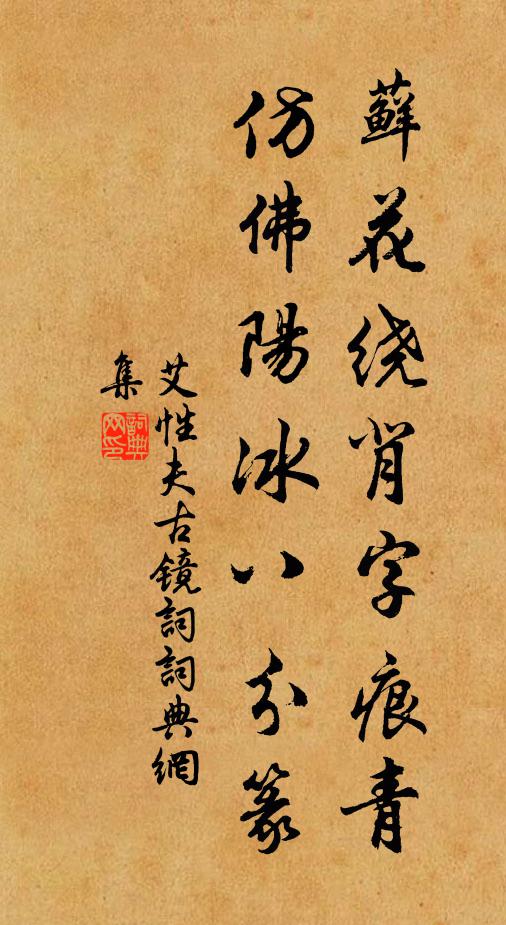 蘚花绕背字痕青
仿佛陽冰八分篆
艾性夫古镜詞詞典網
集
詞典
网印